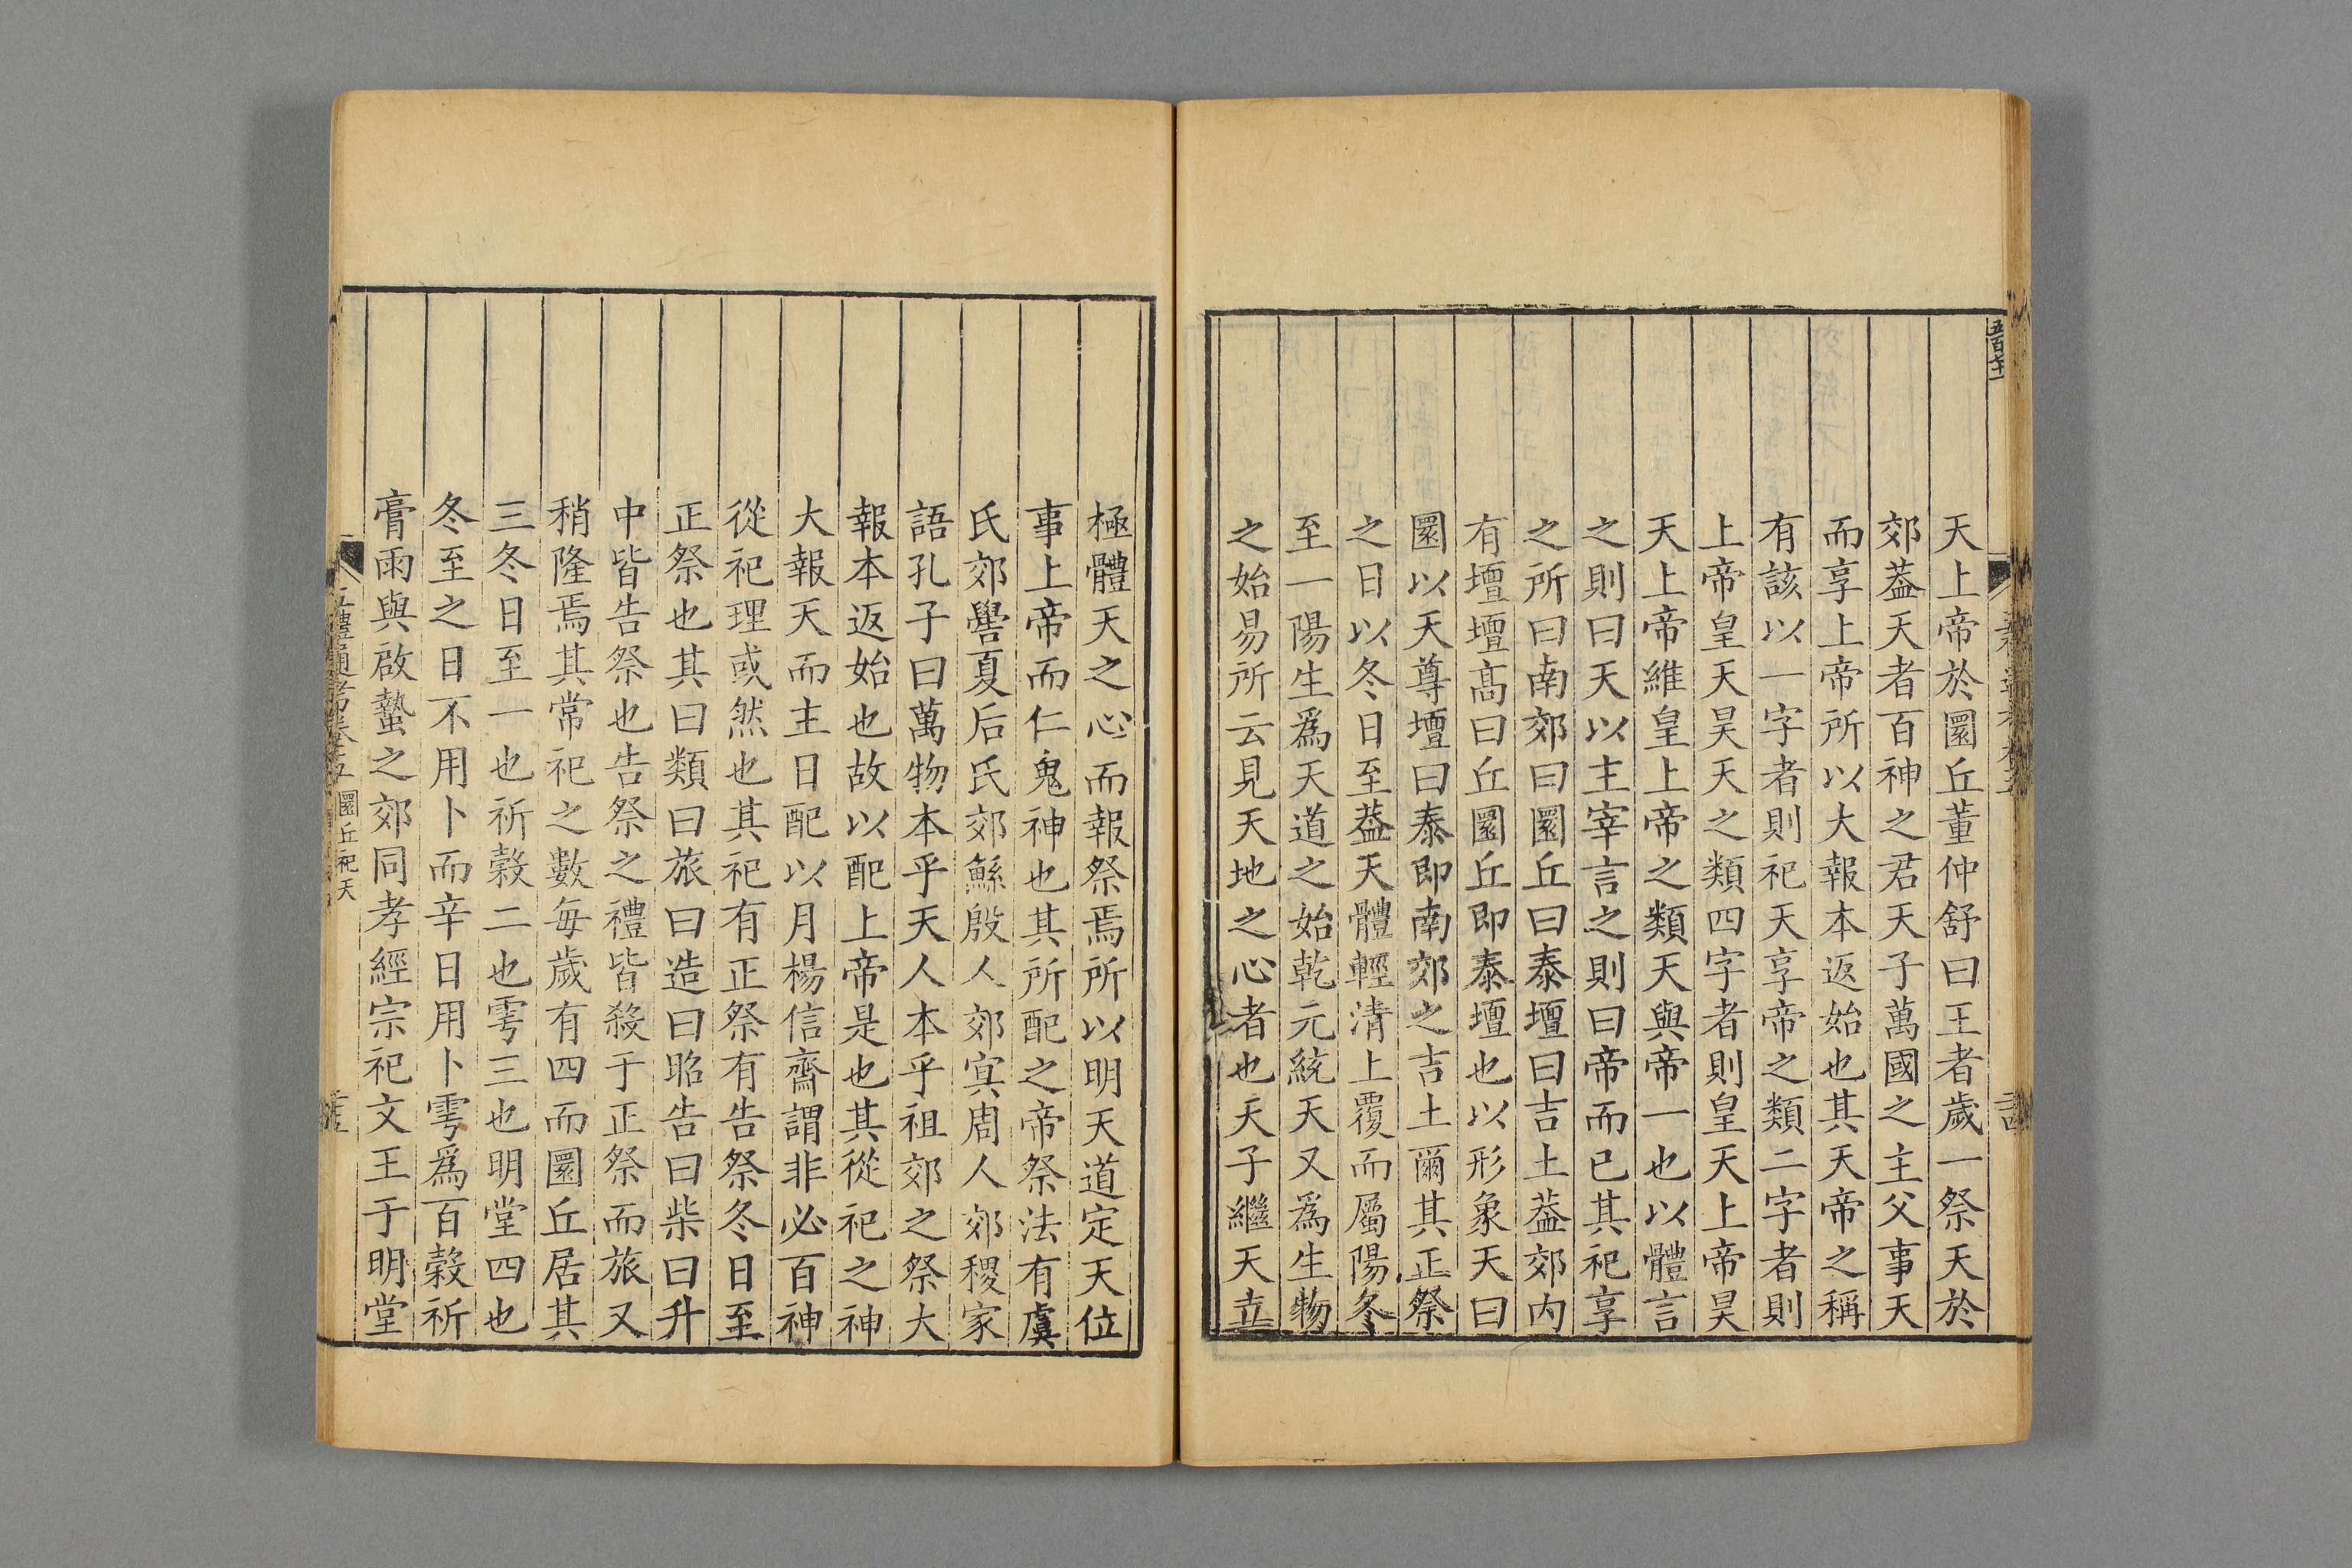 天上帝於圜丘董仲舒曰王者歲一祭天於
郊葢天者百神之君天子萬國之主父事天
而享上帝所以大報本返始也其天帝之稱
有該以一字者則祀天享帝之類二字者則
上帝皇天昊天之類四字者則皇天上帝昊
天上帝維皇上帝之類天與帝一也以體言
之則曰天以主宰言之則曰帝而已其祀享
之所曰南郊曰圜丘曰泰壇曰吉土葢郊內
有壇壇髙曰丘圜丘即泰壇也以形象天曰
圜以天尊壇曰泰即南郊之吉土爾其正祭
之日以冬日至葢天體輕清上覆而屬陽冬
至一陽生爲天道之始乾元統天又爲生物
之始易所云見天地之心者也天子繼天立
極體天之心而報祭焉所以明天道定天位
事上帝而仁鬼神也其所配之帝祭法有虞
氏郊嚳夏后氏郊鯀殷人郊寞周人郊稷家
語孔子曰萬物本乎天人本乎祖郊之祭大
報本返始也故以配上帝是也其從祀之神
大報天而主日配以月楊信齋謂非必百神
從祀理或然也其祀有正祭有告祭冬日至
正祭也其曰類曰旅曰造曰昭告曰柴曰升
中皆告祭也告祭之禮皆殺于正祭而旅又
稍隆焉其常祀之數每歲有四而圜丘居其
三冬日至一也祈穀二也雩三也明堂四也
冬至之日不用卜而辛日用卜雩爲百穀祈
膏雨與啟蟄之郊同孝經宗祀文王于明堂
圜丘祀天